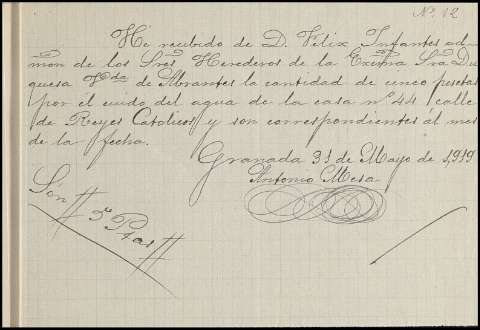 Nº 12
He recibido de D. Felix Infantes ad-
mon de los Sres Herederos de la Excma Sra Du
quesa Vda de Abrantes la cantidad de cinco pesetas
por el cuido del agua de la casa nº 44 calle
de Reyes Catolicos y son correspondientes al mes
de la fecha.
Granada 31 de Mayo de 1,919
Antonio Mesa
Son
5 Ptas